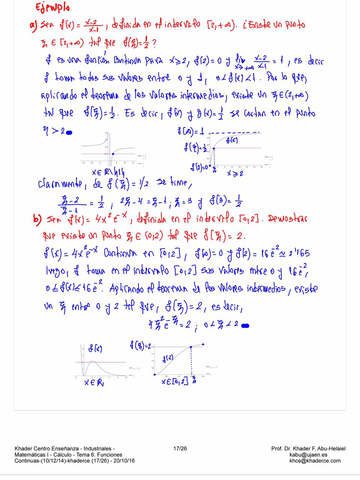 Ejemplo
a) Sea f(x) = x-2/x-1, definida en el intervalo [2,+∞). ¿Existe un punto
ξ ∈ [2,+∞) tal que f(ξ) = 1/2?
f es una función continua para x≥2, f(2)=0 y lim x→+∞ x-2/x-1 = 1, es decir
f toma todos sus valores entre 0 y 1, 0≤f(x)<1. Por lo que,
aplicando el teorema de los valores intermedios, existe un ξ∈[2,+∞)
tal que f(ξ)=1/2. Es decir, f(x) y f(x)=1/2 se cortan en el punto
ξ > 2
f(x)
f(ξ)=1/2
f(2)=0
x≥2
Claramente, de f(ξ) = 1/2 se tiene,
ξ-2/ξ-1 = 1/2, 2ξ-4=ξ-1; ξ=3 y f(3)=1/2
b) Sea f(x) = 4x²e^-x, definida en el intervalo [0,2]. Demostrar
que existe un punto ξ∈(0,2) tal que f(ξ)=2.
f(x) = 4x²e^-x continua en [0,2], f(0)=0 y f(2)=16e^-2≃2'165
luego, f toma en el intervalo [0,2] sus valores entre 0 y 16e^-2,
0≤f(x)≤16e^-2. Aplicando el teorema de los valores intermedios, existe
un ξ entre 0 y 2 tal que, f(ξ)=2, es decir,
4ξ²e^-ξ=2, 0<ξ<2
f(x)
f(ξ)=2
f(x)
x∈R,
x∈[0,2]
ξ
Khader Centro Enseñanza - Industriales -
Matemáticas I - Cálculo - Tema 6. Funciones
Continuas-(10/12/14)-khaderce (17/26) - 20/10/16
17/26
Prof. Dr. Khader F. Abu-Helaiel
kabu@ujaen.es
khce@khaderce.com